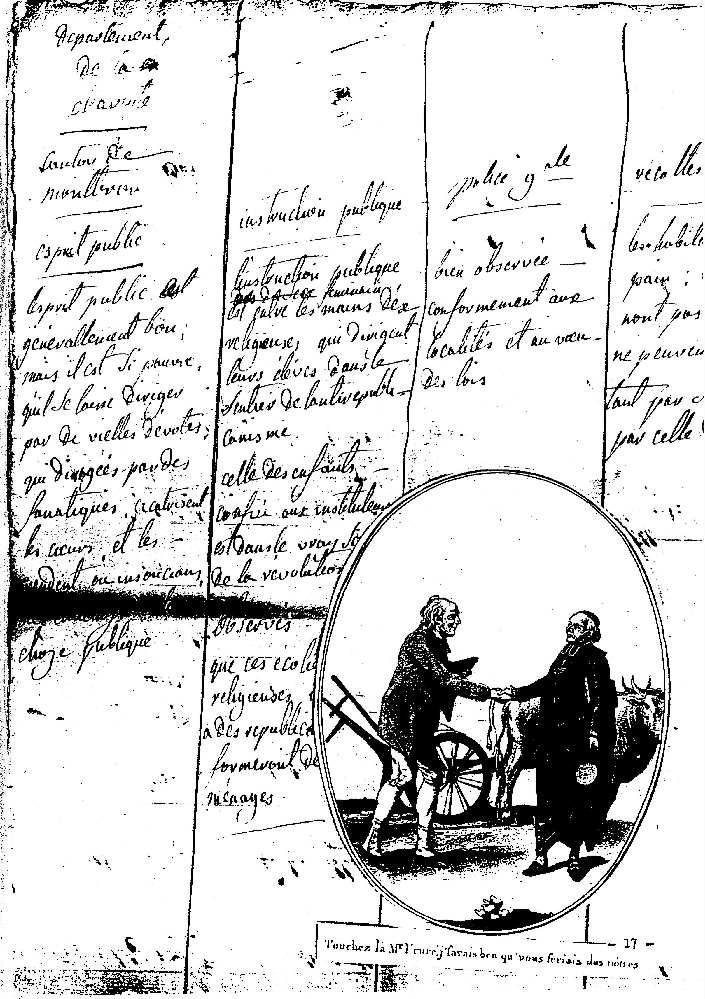 departement,
de la
charente
canton de
montbron
esprit public
lesprit public est
généralement bon;
mais il est si pauvre,
qu'il se laisse diriger
par de vielles dévotes;
qui dirigées par des
fanatiques,
les cœurs, et les
choze publique
instruction publique
linstruction publique
est entre les mains des
religieuses, qui dirigent
leurs élèves dans le
sentier de lantirepubli-
canisme.
celle des enfants
confiée aux instituteurs
est dans le vray
de la révolution
observés
que ces
religieuses
à des
formeront de
ménages
police gle
bien observée
conformement aux
localités et au vœu
des lois
recoltes
les habit
pain ;
nont pas
ne peuven
tant par
par celle
Touchez la Mr l'cure j'savais ben qu'vous seriais des nôtres
- 17 -